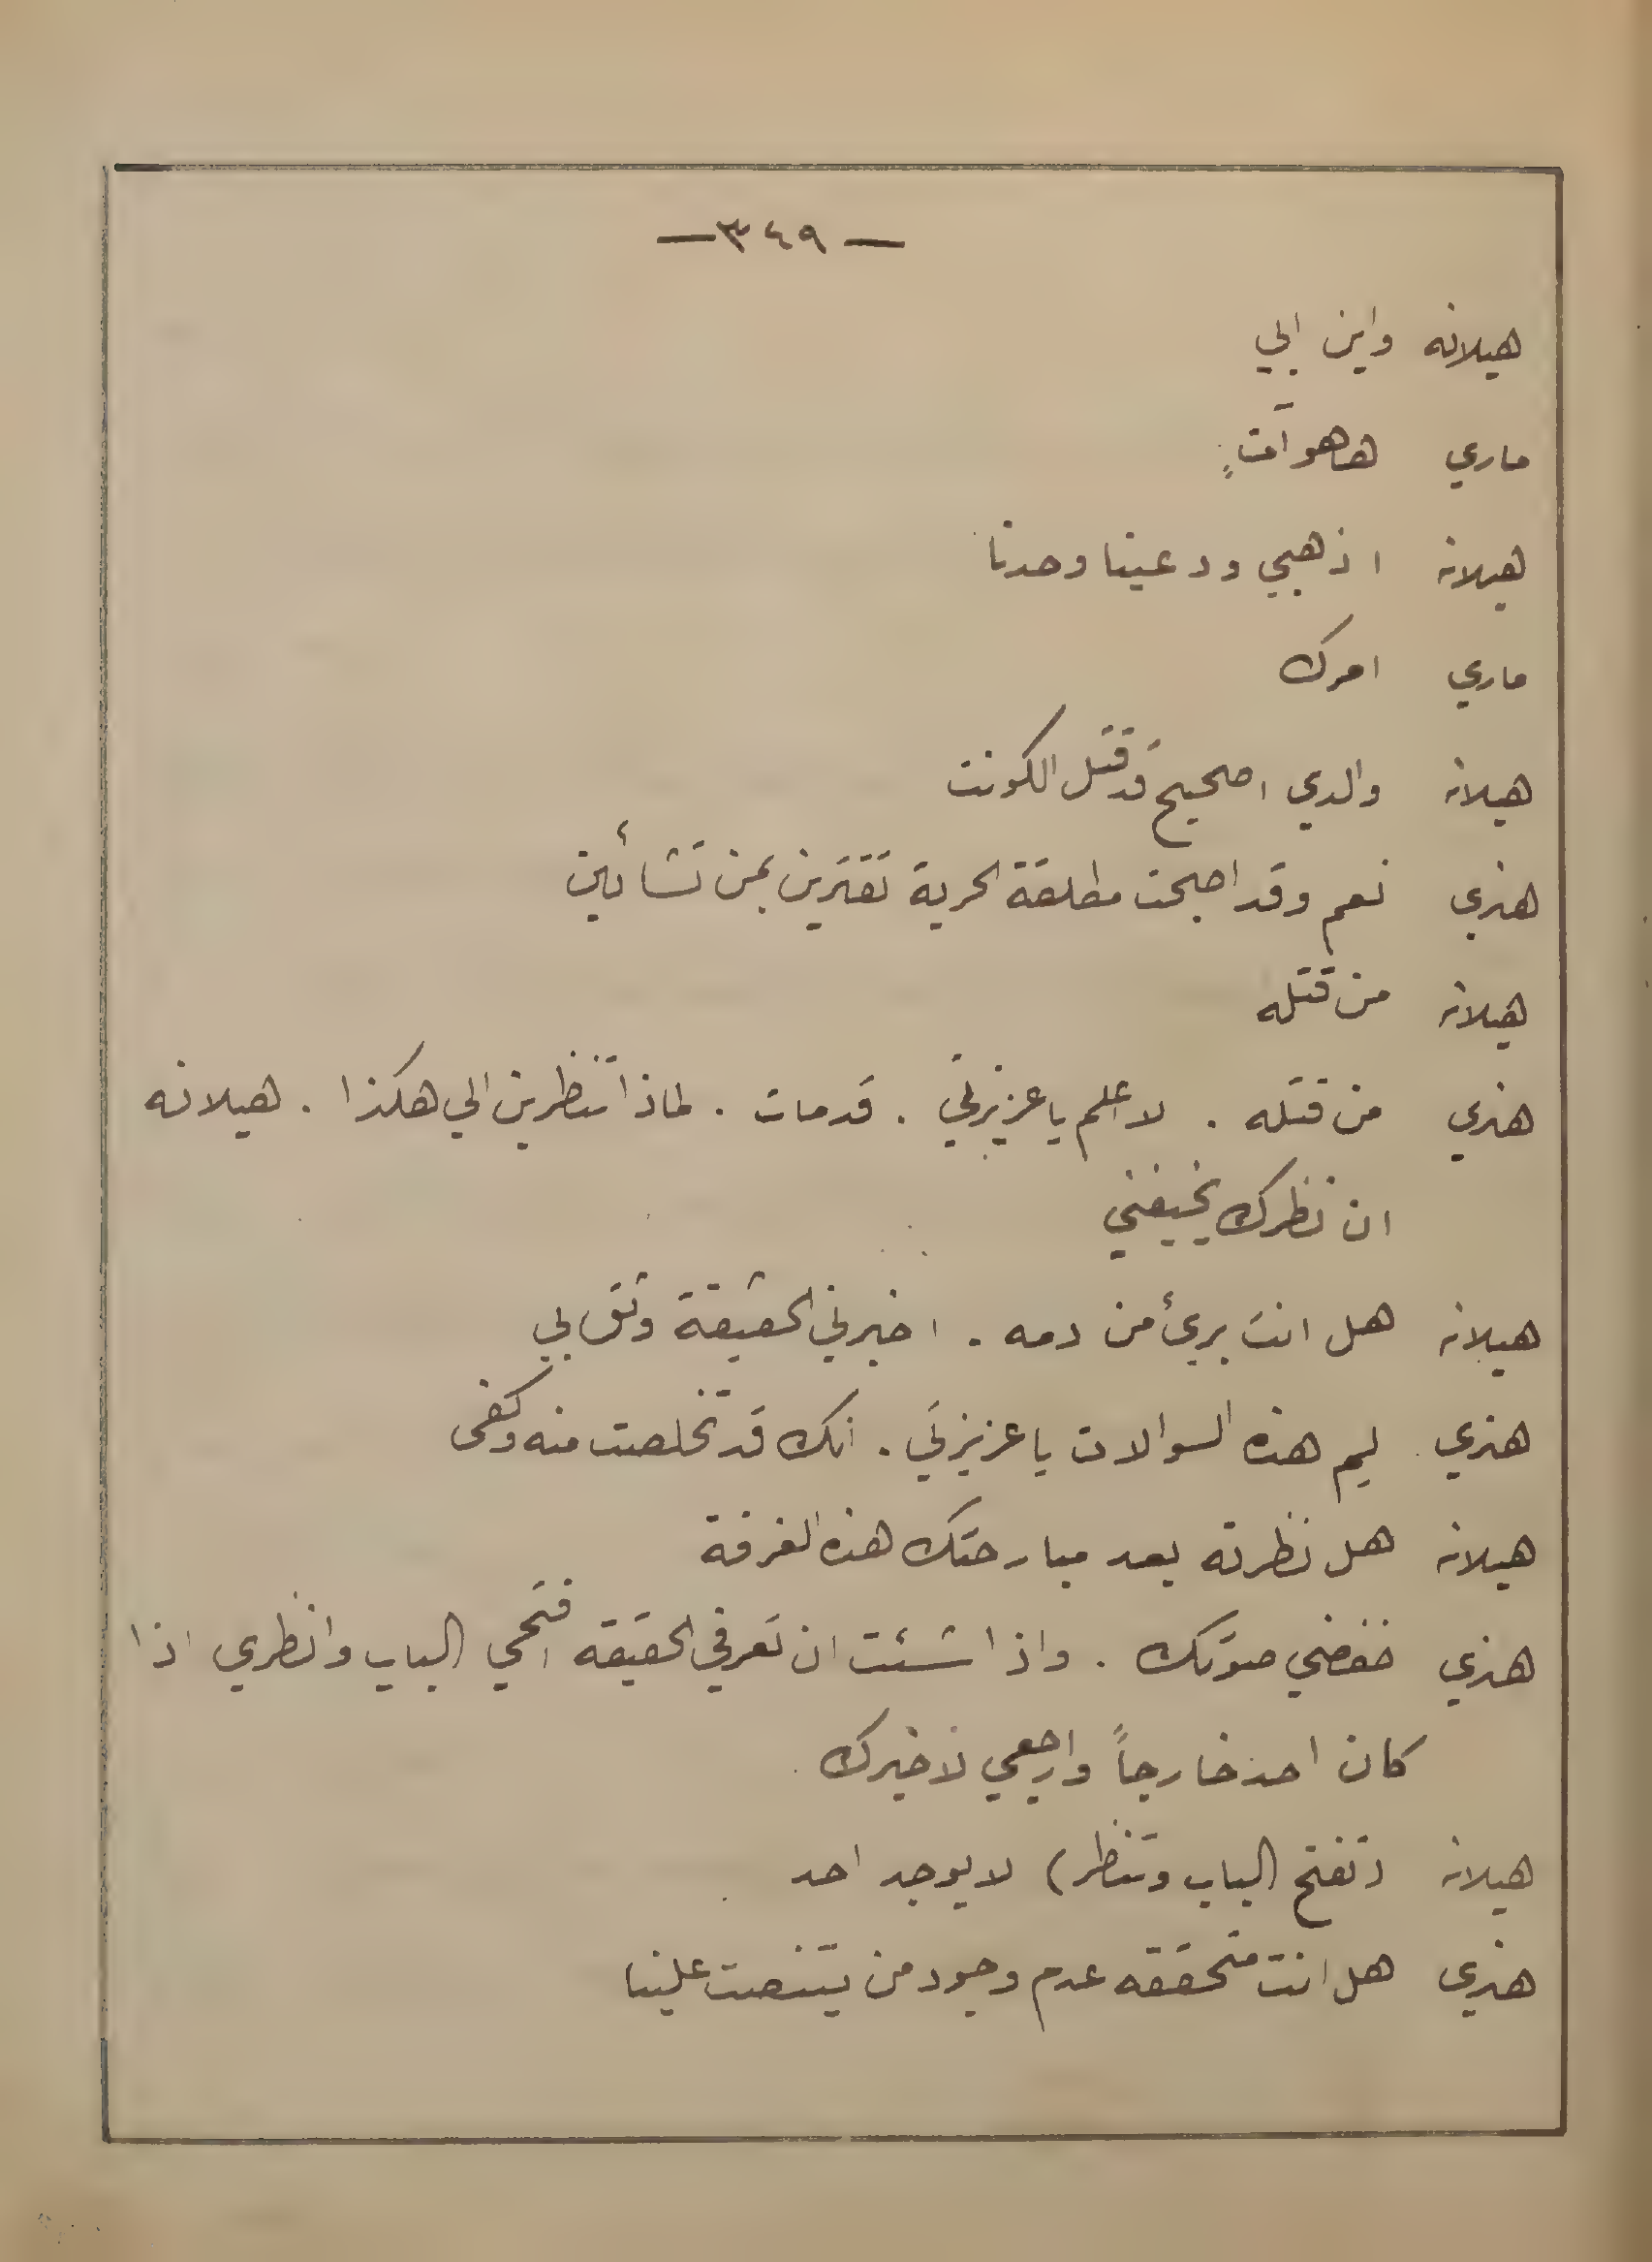 — ٣٤٩ —
هيلانه واين ابي
ماري هاهو آتٍ
هيلانه اذهبي ودعينا وحدنا
ماري امرك
هيلانه والدي اصحيح قد قتل الكونت
هنري نعم وقد اصبحت مطلقة الحرية تقترين بمن تشائين
هيلانه من قتله
هنري من قتله . لا اعلم يا عزيزتي . قد مات . لماذا تنظرين الي هكذا . هيلانه
ان نظرك يخيفني
هيلانه هل انت برئ من دمه . اخبرني الحقيقة وثق بي
هنري لم هذه السوالات يا عزيزتي . انك قد تخلصت منه وكفى
هيلانه هل نظرته بعد مبارحتك هذه الغرفة
هنري خفضي صوتك . واذا شئت ان تعرفي الحقيقه افتحي الباب وانظري اذا
كان احد خارجاً وارجعي لاخبرك
هيلانه (تفتح الباب وتنظر) لا يوجد احد
هنري هل انت متحققه عدم وجود من يتنصت علينا